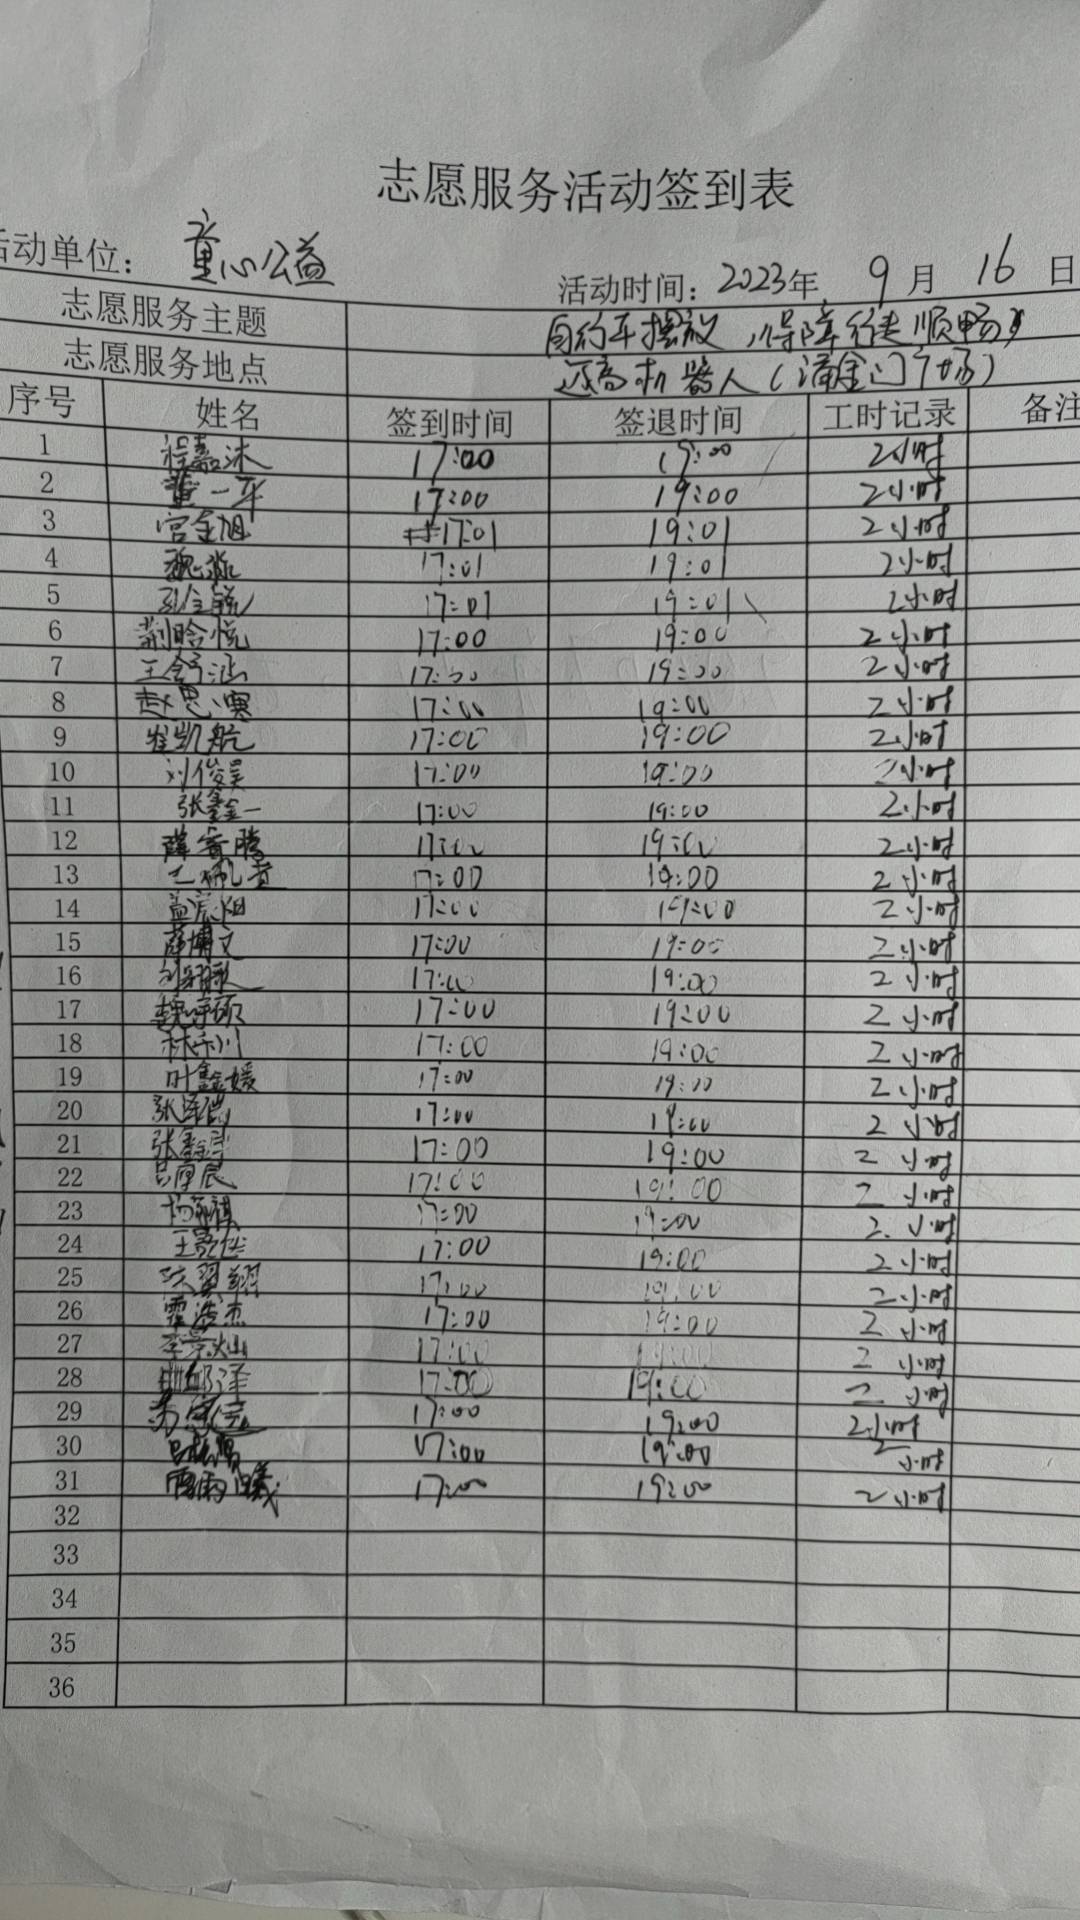 志愿服务活动签到表
活动单位： 童心公益
活动时间：2023年 9月 16日
志愿服务主题 自行车摆放，保障行走顺畅
志愿服务地点 机器人（涌金门广场）
序号 姓名 签到时间 签退时间 工时记录 备注
1 程嘉沐 17:00 19:00 2小时
2 董一平 17:00 19:00 2小时
3 宫金旭 17:01 19:01 2小时
4 魏 17:01 19:01 2小时
5 17:01 19:01 2小时
6 荆晗悦 17:00 19:00 2小时
7 王舒涵 17:00 19:00 2小时
8 赵思 17:00 19:00 2小时
9 崔凯航 17:00 19:00 2小时
10 刘俊昊 17:00 19:00 2小时
11 张鑫一 17:00 19:00 2小时
12 薛 腾 17:00 19:00 2小时
13 17:00 19:00 2小时
14 孟宸 17:00 19:00 2小时
15 薛博文 17:00 19:00 2小时
16 17:00 19:00 2小时
17 魏 硕 17:00 19:00 2小时
18 林禾川 17:00 19:00 2小时
19 叶鑫媛 17:00 19:00 2小时
20 张 17:00 19:00 2小时
21 张鑫 17:00 19:00 2小时
22 吕厚辰 17:00 19:00 2小时
23 杨 17:00 19:00 2小时
24 王 17:00 19:00 2小时
25 翼翔 17:00 19:00 2小时
26 霍浩杰 17:00 19:00 2小时
27 李景灿 17:00 19:00 2小时
28 泽 17:00 19:00 2小时
29 17:00 19:00 2小时
30 吕 17:00 19:00 2小时
31 17:00 19:00 2小时
32
33
34
35
36